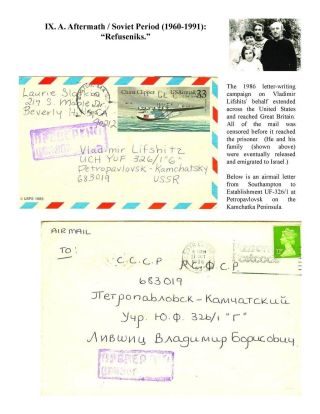 IX. A. Aftermath / Soviet Period (1960-1991):
“Refuseniks.”
Laurie
217 S. Maple Dr.
Beverly
90212
China Clipper
USAirmail
33
ПРОВЕРЕНО
ЦЕНЗОР
Vladimir Lifshitz
UCH YUF 326/1 "G"
Petropavlovsk - Kamchatsky
683019 USSR
© USPS 1985
The 1986 letter-writing
campaign on Vladimir
Lifshits' behalf extended
across the United States
and reached Great Britain.
All of the mail was
censored before it reached
the prisoner. (He and his
family (shown above)
were eventually released
and emigrated to Israel.)
Below is an airmail letter
from Southampton to
Establishment UF-326/1 at
Petropavlovsk on the
Kamchatka Peninsula.
AIR MAIL
TO:
С С С Р РСФСР
683019
Петропавловск - Камчатский
Учр. Ю.Ф. 326/1 "Г"
Лившиц Владимир Борисович
ПРОВЕРЕНО
ЦЕНЗОР